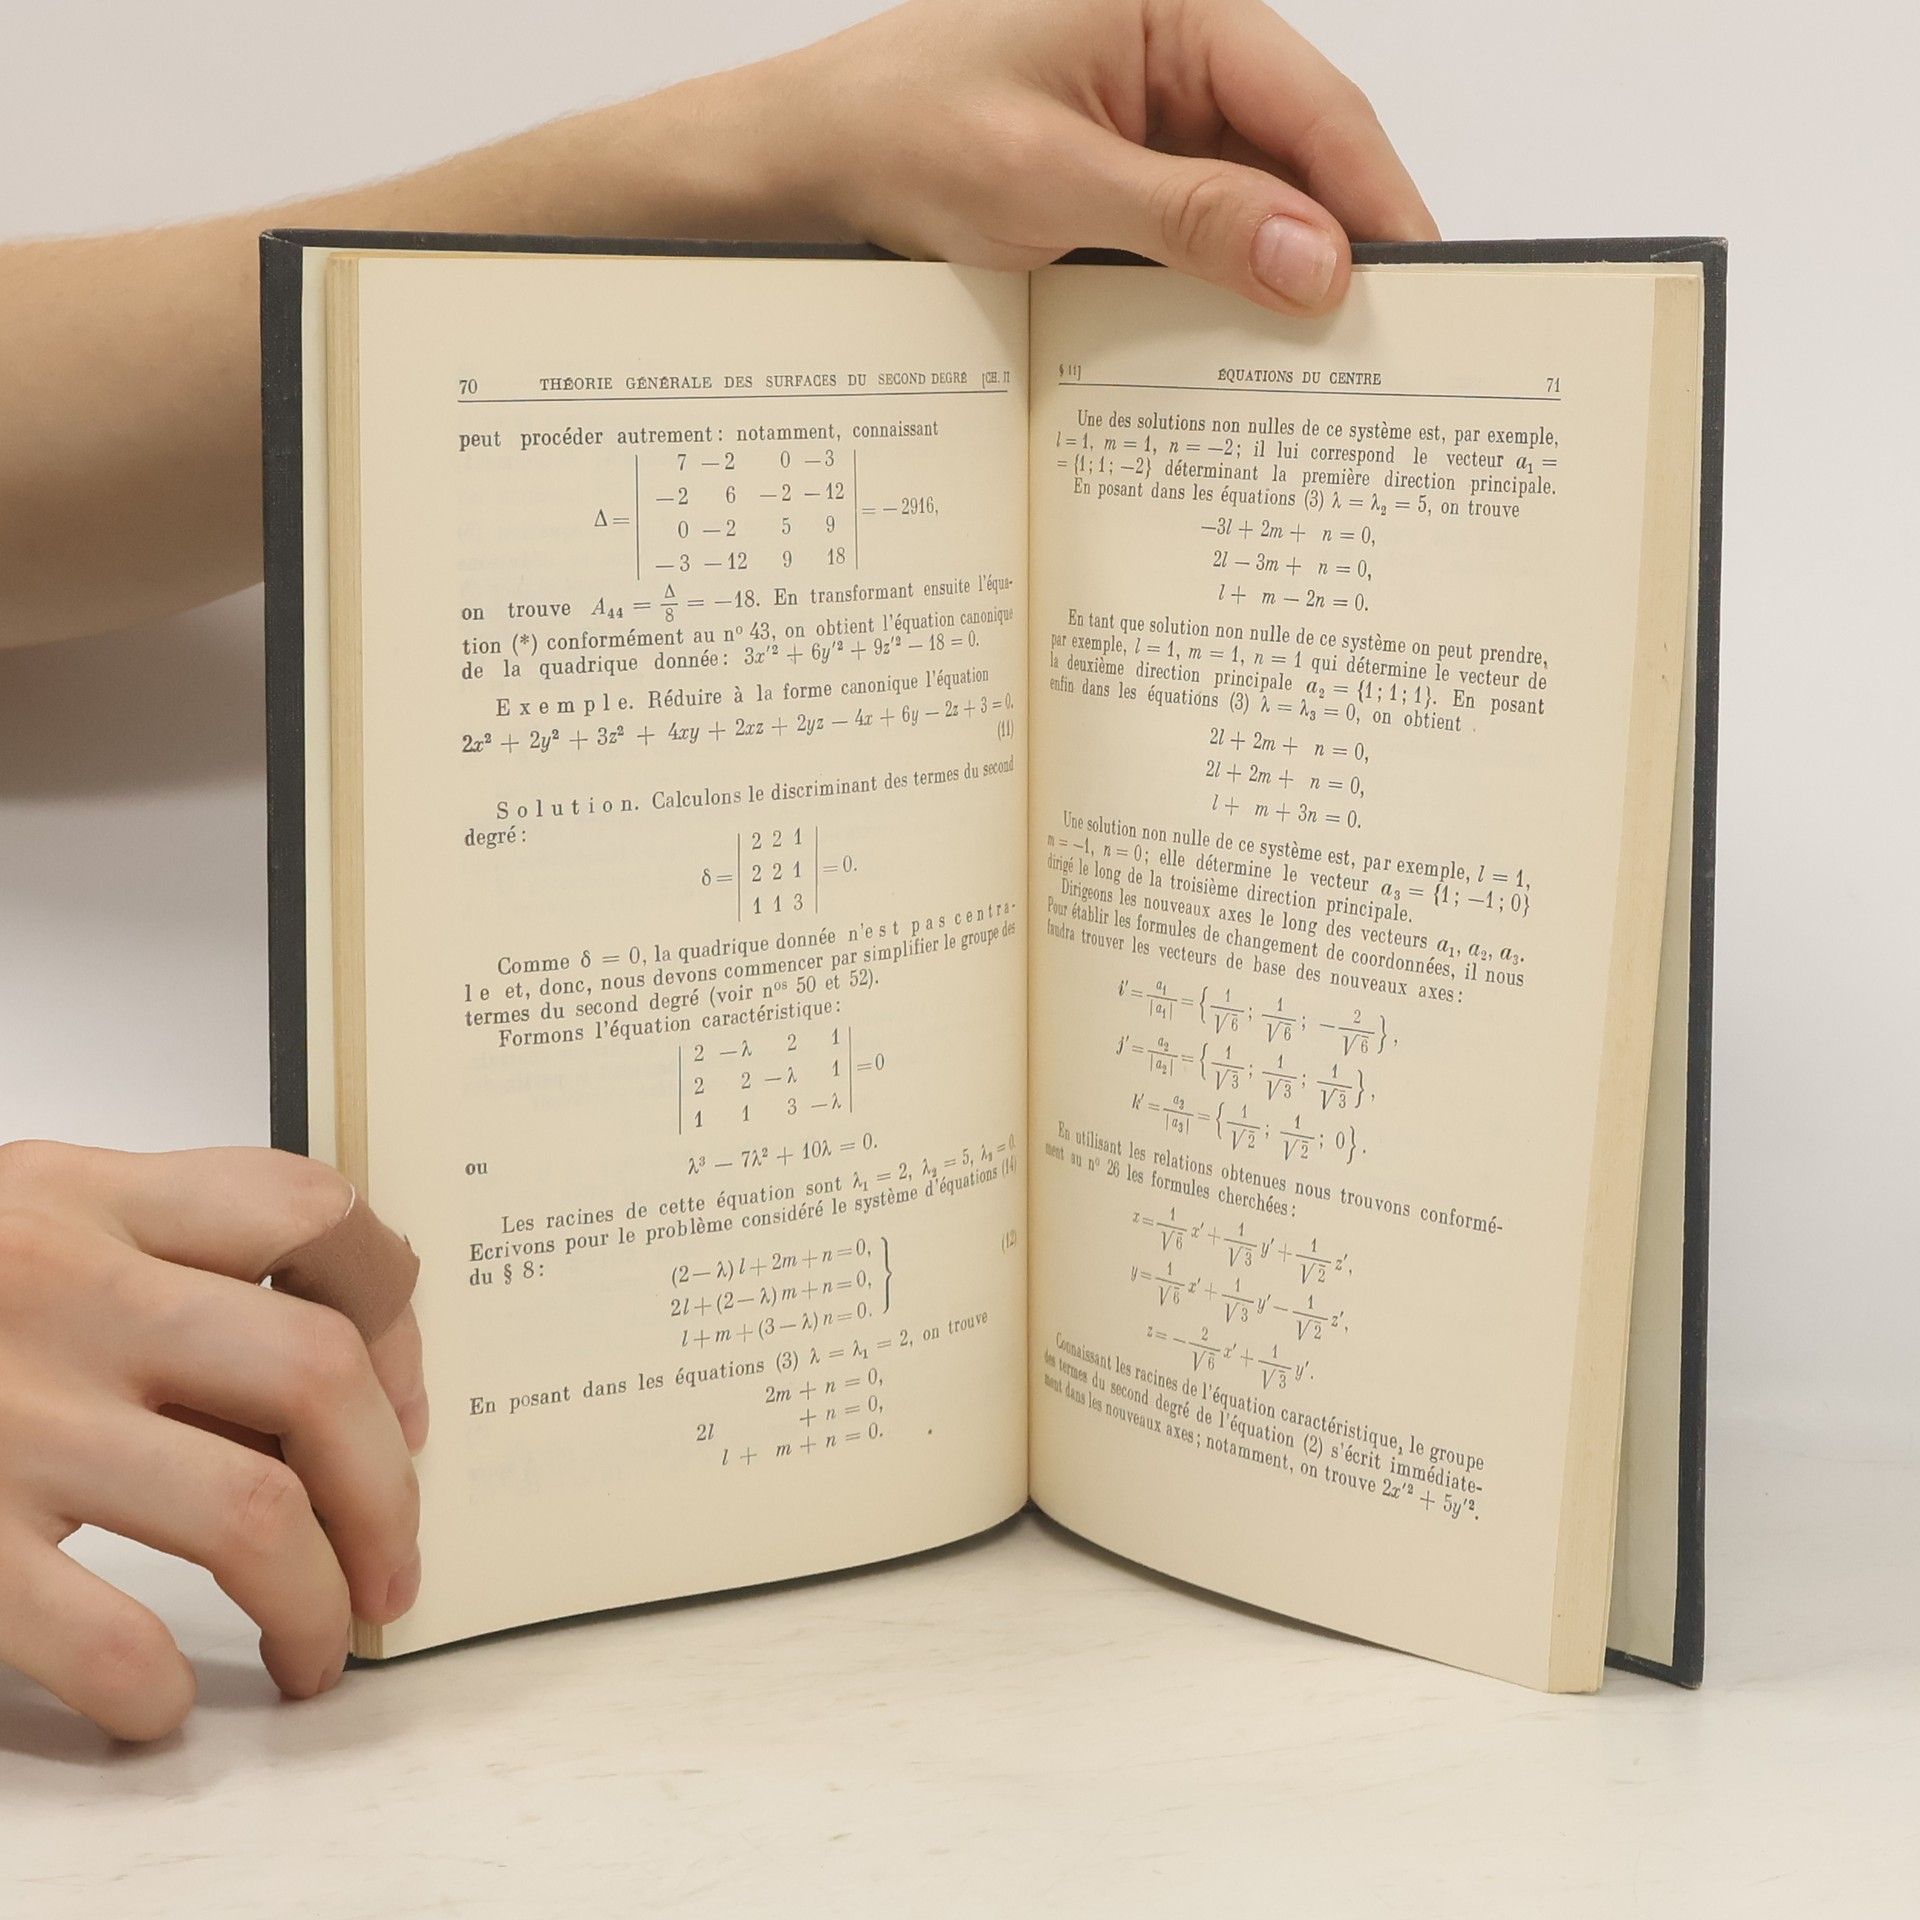 70 THÉORIE GÉNÉRALE DES SURFACES DU SECOND DEGRÉ [CH. II
peut procéder autrement: notamment, connaissant
Δ = | 7 −2 0 −3 |
| −2 6 −2 −12 |
| 0 −2 5 9 | = −2916,
| −3 −12 9 18 |
on trouve A₄₄ = Δ/8 = −18. En transformant ensuite l'équa-
tion (*) conformément au nº 43, on obtient l'équation canonique
de la quadrique donnée: 3x′² + 6y′² + 9z′² − 18 = 0.
Exemple. Réduire à la forme canonique l'équation
2x² + 2y² + 3z² + 4xy + 2xz + 2yz − 4x + 6y − 2z + 3 = 0.
(11)
Solution. Calculons le discriminant des termes du second
degré:
| 2 2 1 |
δ = | 2 2 1 | = 0.
| 1 1 3 |
Comme δ = 0, la quadrique donnée n'est pas centra-
le et, donc, nous devons commencer par simplifier le groupe des
termes du second degré (voir nᵒˢ 50 et 52).
Formons l'équation caractéristique:
| 2 −λ 2 1 |
| 2 2 −λ 1 | = 0
| 1 1 3 −λ |
ou λ³ − 7λ² + 10λ = 0.
Les racines de cette équation sont λ₁ = 2, λ₂ = 5, λ₃ = 0.
Ecrivons pour le problème considéré le système d'équations (14)
du § 8:
(2 − λ) l + 2m + n = 0,
2l + (2 − λ) m + n = 0, } (12)
l + m + (3 − λ) n = 0.
En posant dans les équations (3) λ = λ₁ = 2, on trouve
2m + n = 0,
2l + n = 0,
l + m + n = 0.
§ 11] ÉQUATIONS DU CENTRE 71
Une des solutions non nulles de ce système est, par exemple,
l = 1, m = 1, n = −2; il lui correspond le vecteur a₁ =
= {1; 1; −2} déterminant la première direction principale.
En posant dans les équations (3) λ = λ₂ = 5, on trouve
−3l + 2m + n = 0,
2l − 3m + n = 0,
l + m − 2n = 0.
En tant que solution non nulle de ce système on peut prendre,
par exemple, l = 1, m = 1, n = 1 qui détermine le vecteur de
la deuxième direction principale a₂ = {1; 1; 1}. En posant
enfin dans les équations (3) λ = λ₃ = 0, on obtient
2l + 2m + n = 0,
2l + 2m + n = 0,
l + m + 3n = 0.
Une solution non nulle de ce système est, par exemple, l = 1,
m = −1, n = 0; elle détermine le vecteur a₃ = {1; −1; 0}
dirigé le long de la troisième direction principale.
Dirigeons les nouveaux axes le long des vecteurs a₁, a₂, a₃.
Pour établir les formules de changement de coordonnées, il nous
faudra trouver les vecteurs de base des nouveaux axes:
i′ = a₁/|a₁| = {1/√6; 1/√6; −2/√6},
j′ = a₂/|a₂| = {1/√3; 1/√3; 1/√3},
k′ = a₃/|a₃| = {1/√2; 1/√2; 0}.
En utilisant les relations obtenues nous trouvons conformé-
ment au nº 26 les formules cherchées:
x = 1/√6 x′ + 1/√3 y′ + 1/√2 z′,
y = 1/√6 x′ + 1/√3 y′ − 1/√2 z′,
z = −2/√6 x′ + 1/√3 y′.
Connaissant les racines de l'équation caractéristique, le groupe
des termes du second degré de l'équation (2) s'écrit immédiate-
ment dans les nouveaux axes; notamment, on trouve 2x′² + 5y′².